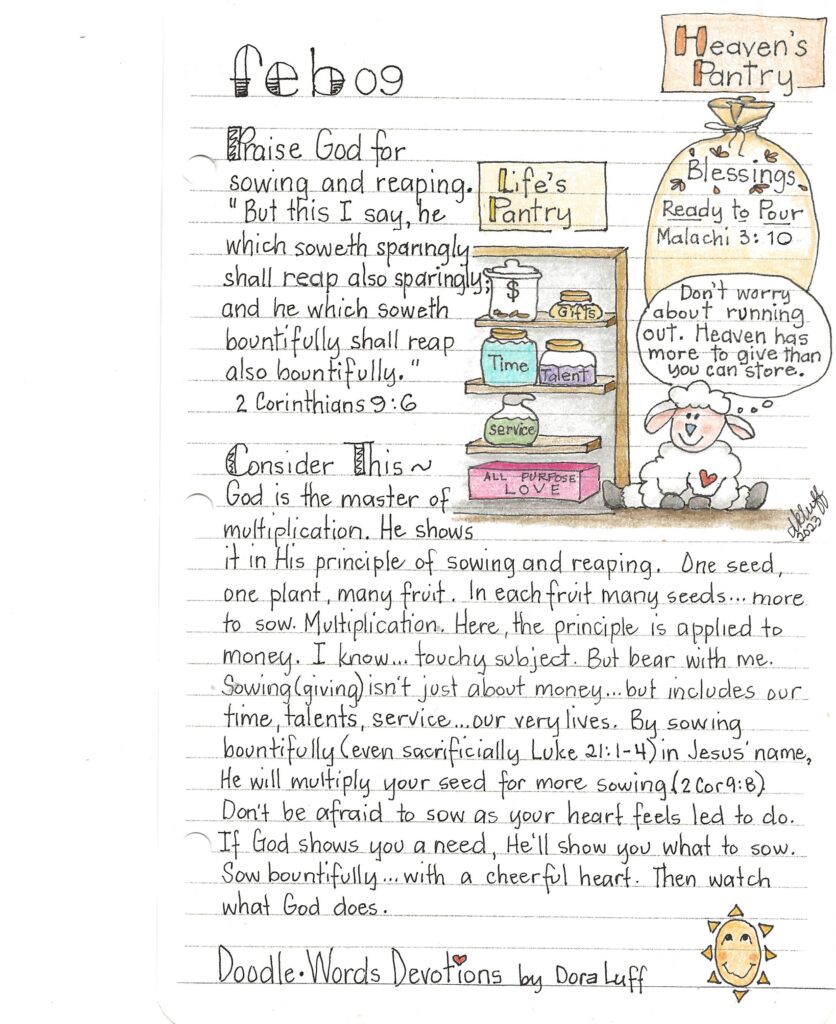 feb 09
Praise God for
sowing and reaping.
"But this I say, he
which soweth sparingly
shall reap also sparingly;
and he which soweth
bountifully shall reap
also bountifully."
2 Corinthians 9:6
Life's
Pantry
$
Gifts
Time
Talent
Service
ALL PURPOSE
LOVE
Heaven's
Pantry
Blessings
Ready to Pour
Malachi 3:10
Don't worry
about running
out. Heaven has
more to give than
you can store.
dkluff
2023
Consider This ~
God is the master of
multiplication. He shows
it in His principle of sowing and reaping. One seed,
one plant, many fruit. In each fruit many seeds... more
to sow. Multiplication. Here, the principle is applied to
money. I know... touchy subject. But bear with me.
Sowing (giving) isn't just about money... but includes our
time, talents, service... our very lives. By sowing
bountifully (even sacrificially Luke 21:1-4) in Jesus' name,
He will multiply your seed for more sowing (2 Cor 9:8)
Don't be afraid to sow as your heart feels led to do.
If God shows you a need, He'll show you what to sow.
Sow bountifully... with a cheerful heart. Then watch
what God does.
Doodle • Words Devotions by Dora Luff